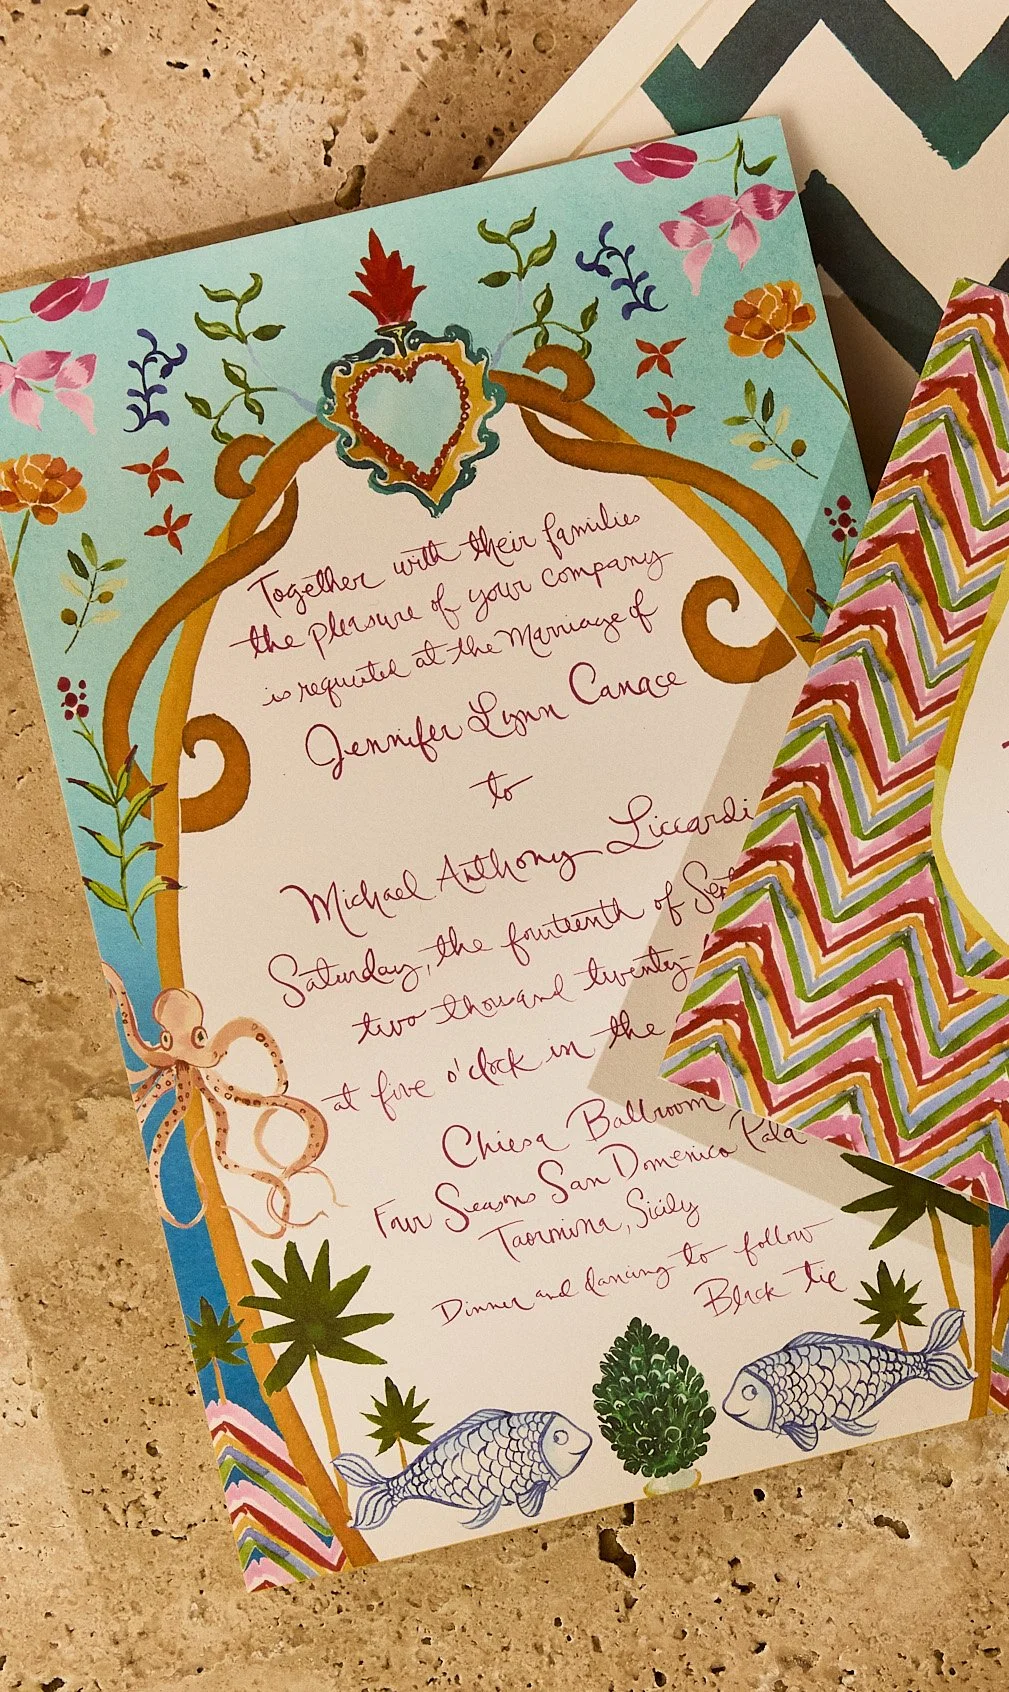 Together with their families
the pleasure of your company
is requested at the Marriage of
Jennifer Lynn Canace
to
Michael Anthony Liccardi
Saturday, the fourteenth of Sept
two thousand twenty-
at five o'clock in the
Chiesa Ballroom
Four Seasons San Domenico Pala
Taormina, Sicily
Dinner and dancing to follow
Black tie